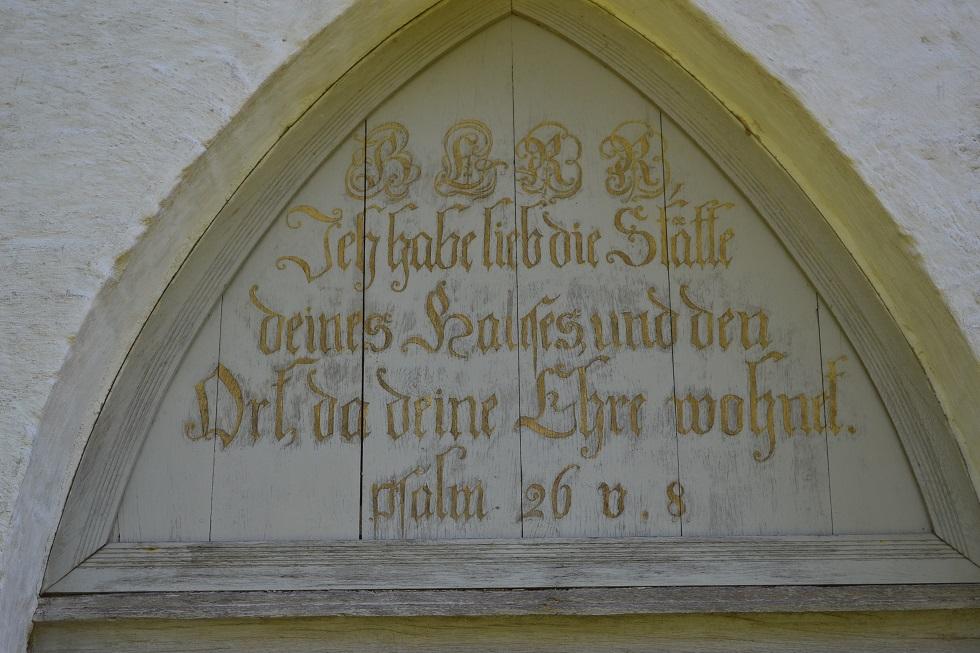 B L R R
Ich habe lieb die Stätte
deines Hauses und den
Ort, da deine Ehre wohnet.
psalm. 26 v. 8